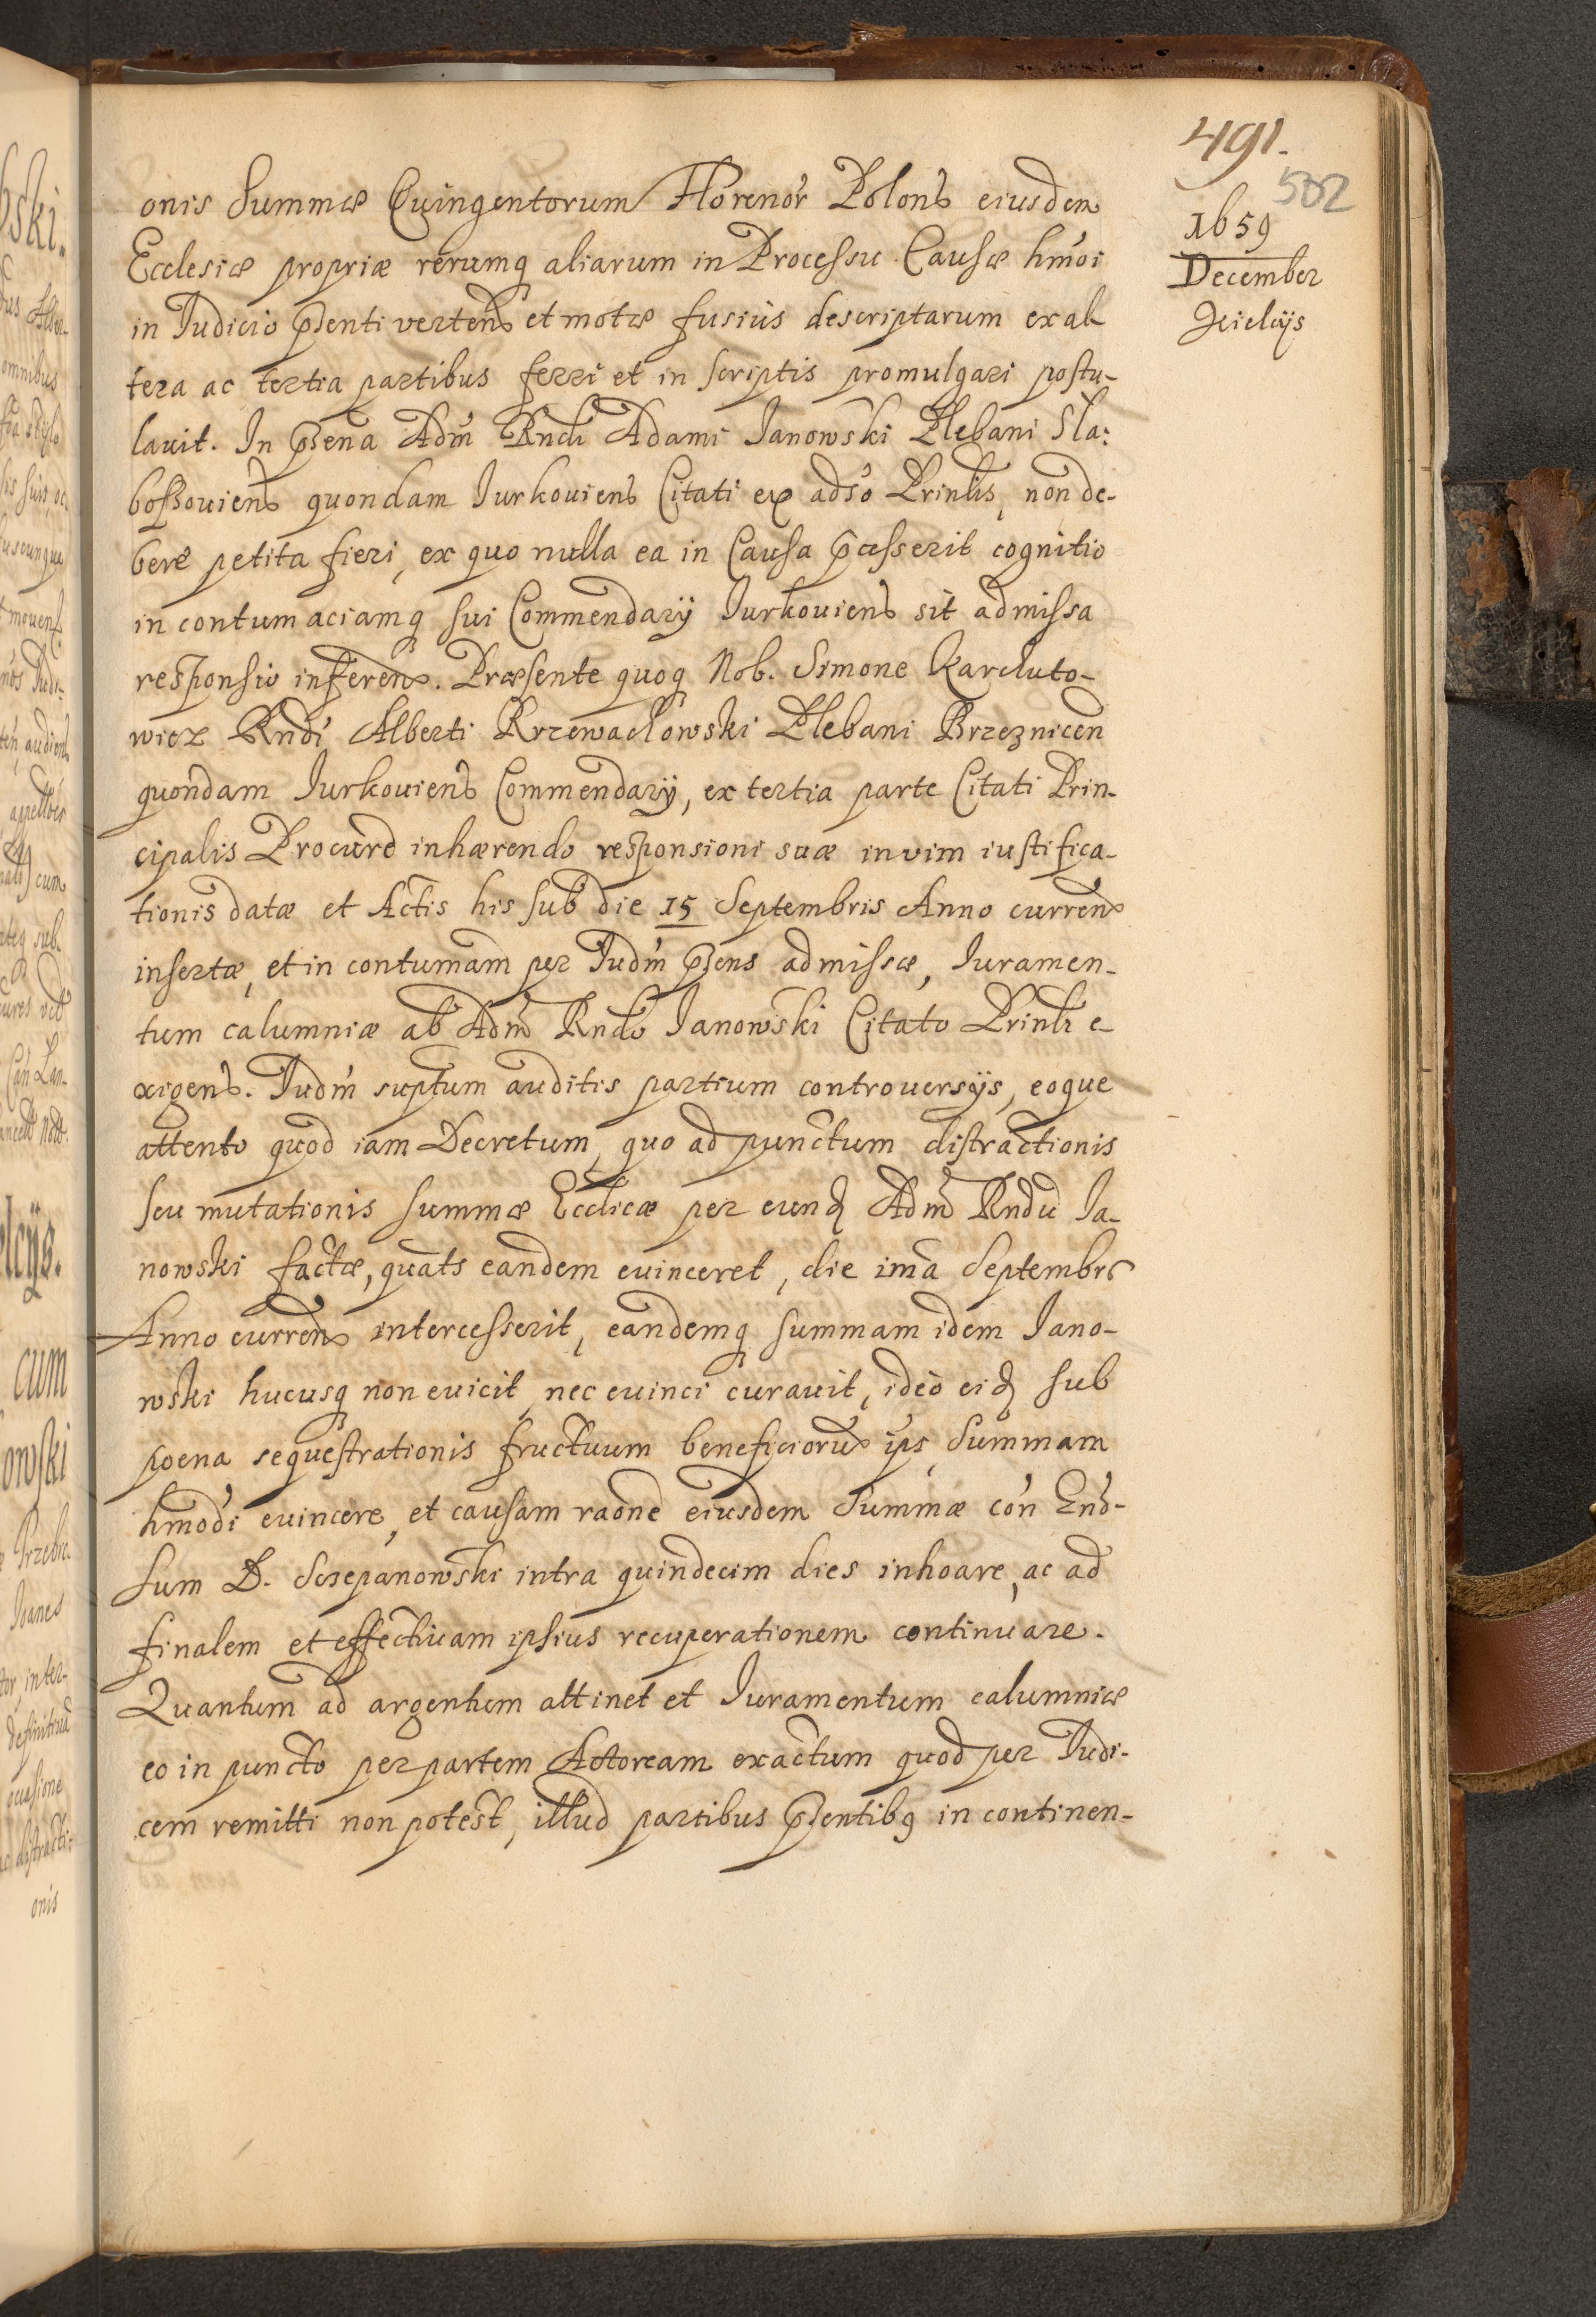 491.
502
1659
December
Kielcijs
onis Summæ Quingentorum Florenor Polons eiusdem
Ecclesiæ propriæ rerumq aliarum in Processu Causæ hmoi
in Iudicio psenti vertens et motæ fusius descriptarum ex al-
tera ac tertia partibus ferri et in scriptis promulgari postu-
lauit. In psena Adm Rndi Adami Ianowski Plebani Sla:
boszouiens quondam Iurkouiens Citati ex adso Prinlis, non de-
bere petita fieri, ex quo nulla ea in Causa pcesserit cognitio
in contumaciamq sui Commendarij Iurkouiens sit admissa
responsio inferen. Præsente quoq Nob. Simone Karcluto-
wicz Rndi Alberti Krzewachowski Plebani Brzeznicen
quondam Iurkouiens Commendarij, ex tertia parte Citati Prin-
cipalis Procure inhærendo responsioni suæ in vim iustifica-
tionis datæ et Actis his sub die 15 Septembris Anno curren
insertæ, et in contumam per Iudm psens admissæ, Iuramen-
tum calumniæ ab Adm Rndo Ianowski Citato Prinli e-
xigens. Iudm suptum auditis partium controuersijs, eoque
attento quod iam Decretum, quo ad punctum distractionis
seu mutationis summæ Ecclicæ per eund Adm Rndu Ia-
nowski factæ, quats eandem euinceret, die ima Septembrs
Anno curren intercesserit, eandemq summam idem Iano-
wski hucusq non euicit, nec euinci curauit, ideo eid sub
poena sequestrationis fructuum beneficioru ips, Summam
hmodi euincere, et causam raone eiusdem Summæ con Gnd-
sum D. Sczepanowski intra quindecim dies inhoare, ac ad
finalem et effectiuam ipsius recuperationem continuare.
Quantum ad argentum attinet et Iuramentum calumniæ
eo in puncto per partem Actoream exactum quod per Iudi-
cem remitti non potest, illud partibus psentibq in continen-